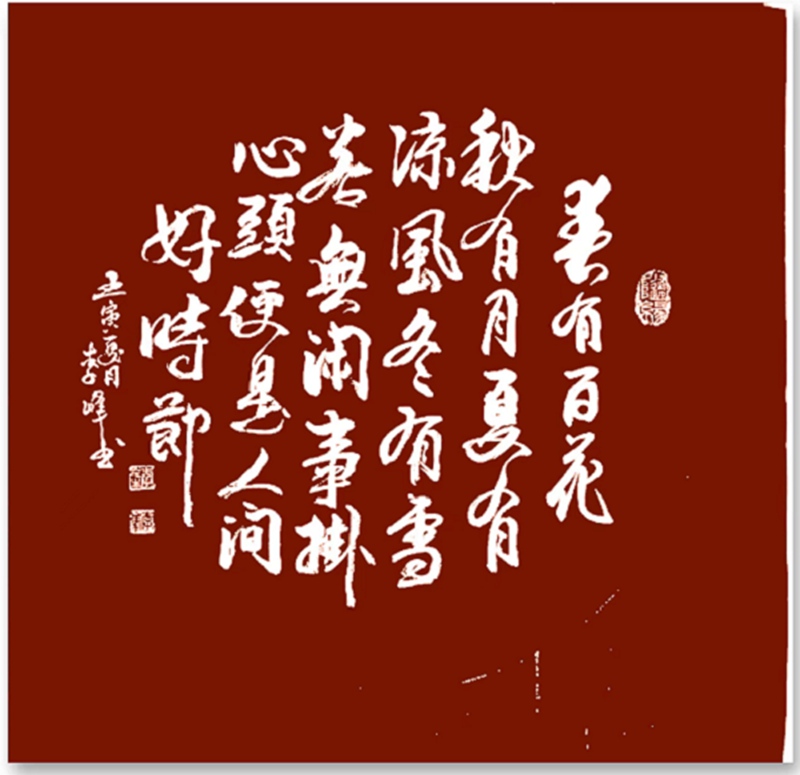 春有百花
秋有月夏有
凉風冬有雪
若無闲事掛
心頭便是人间
好時節
壬寅夏月
李峰书